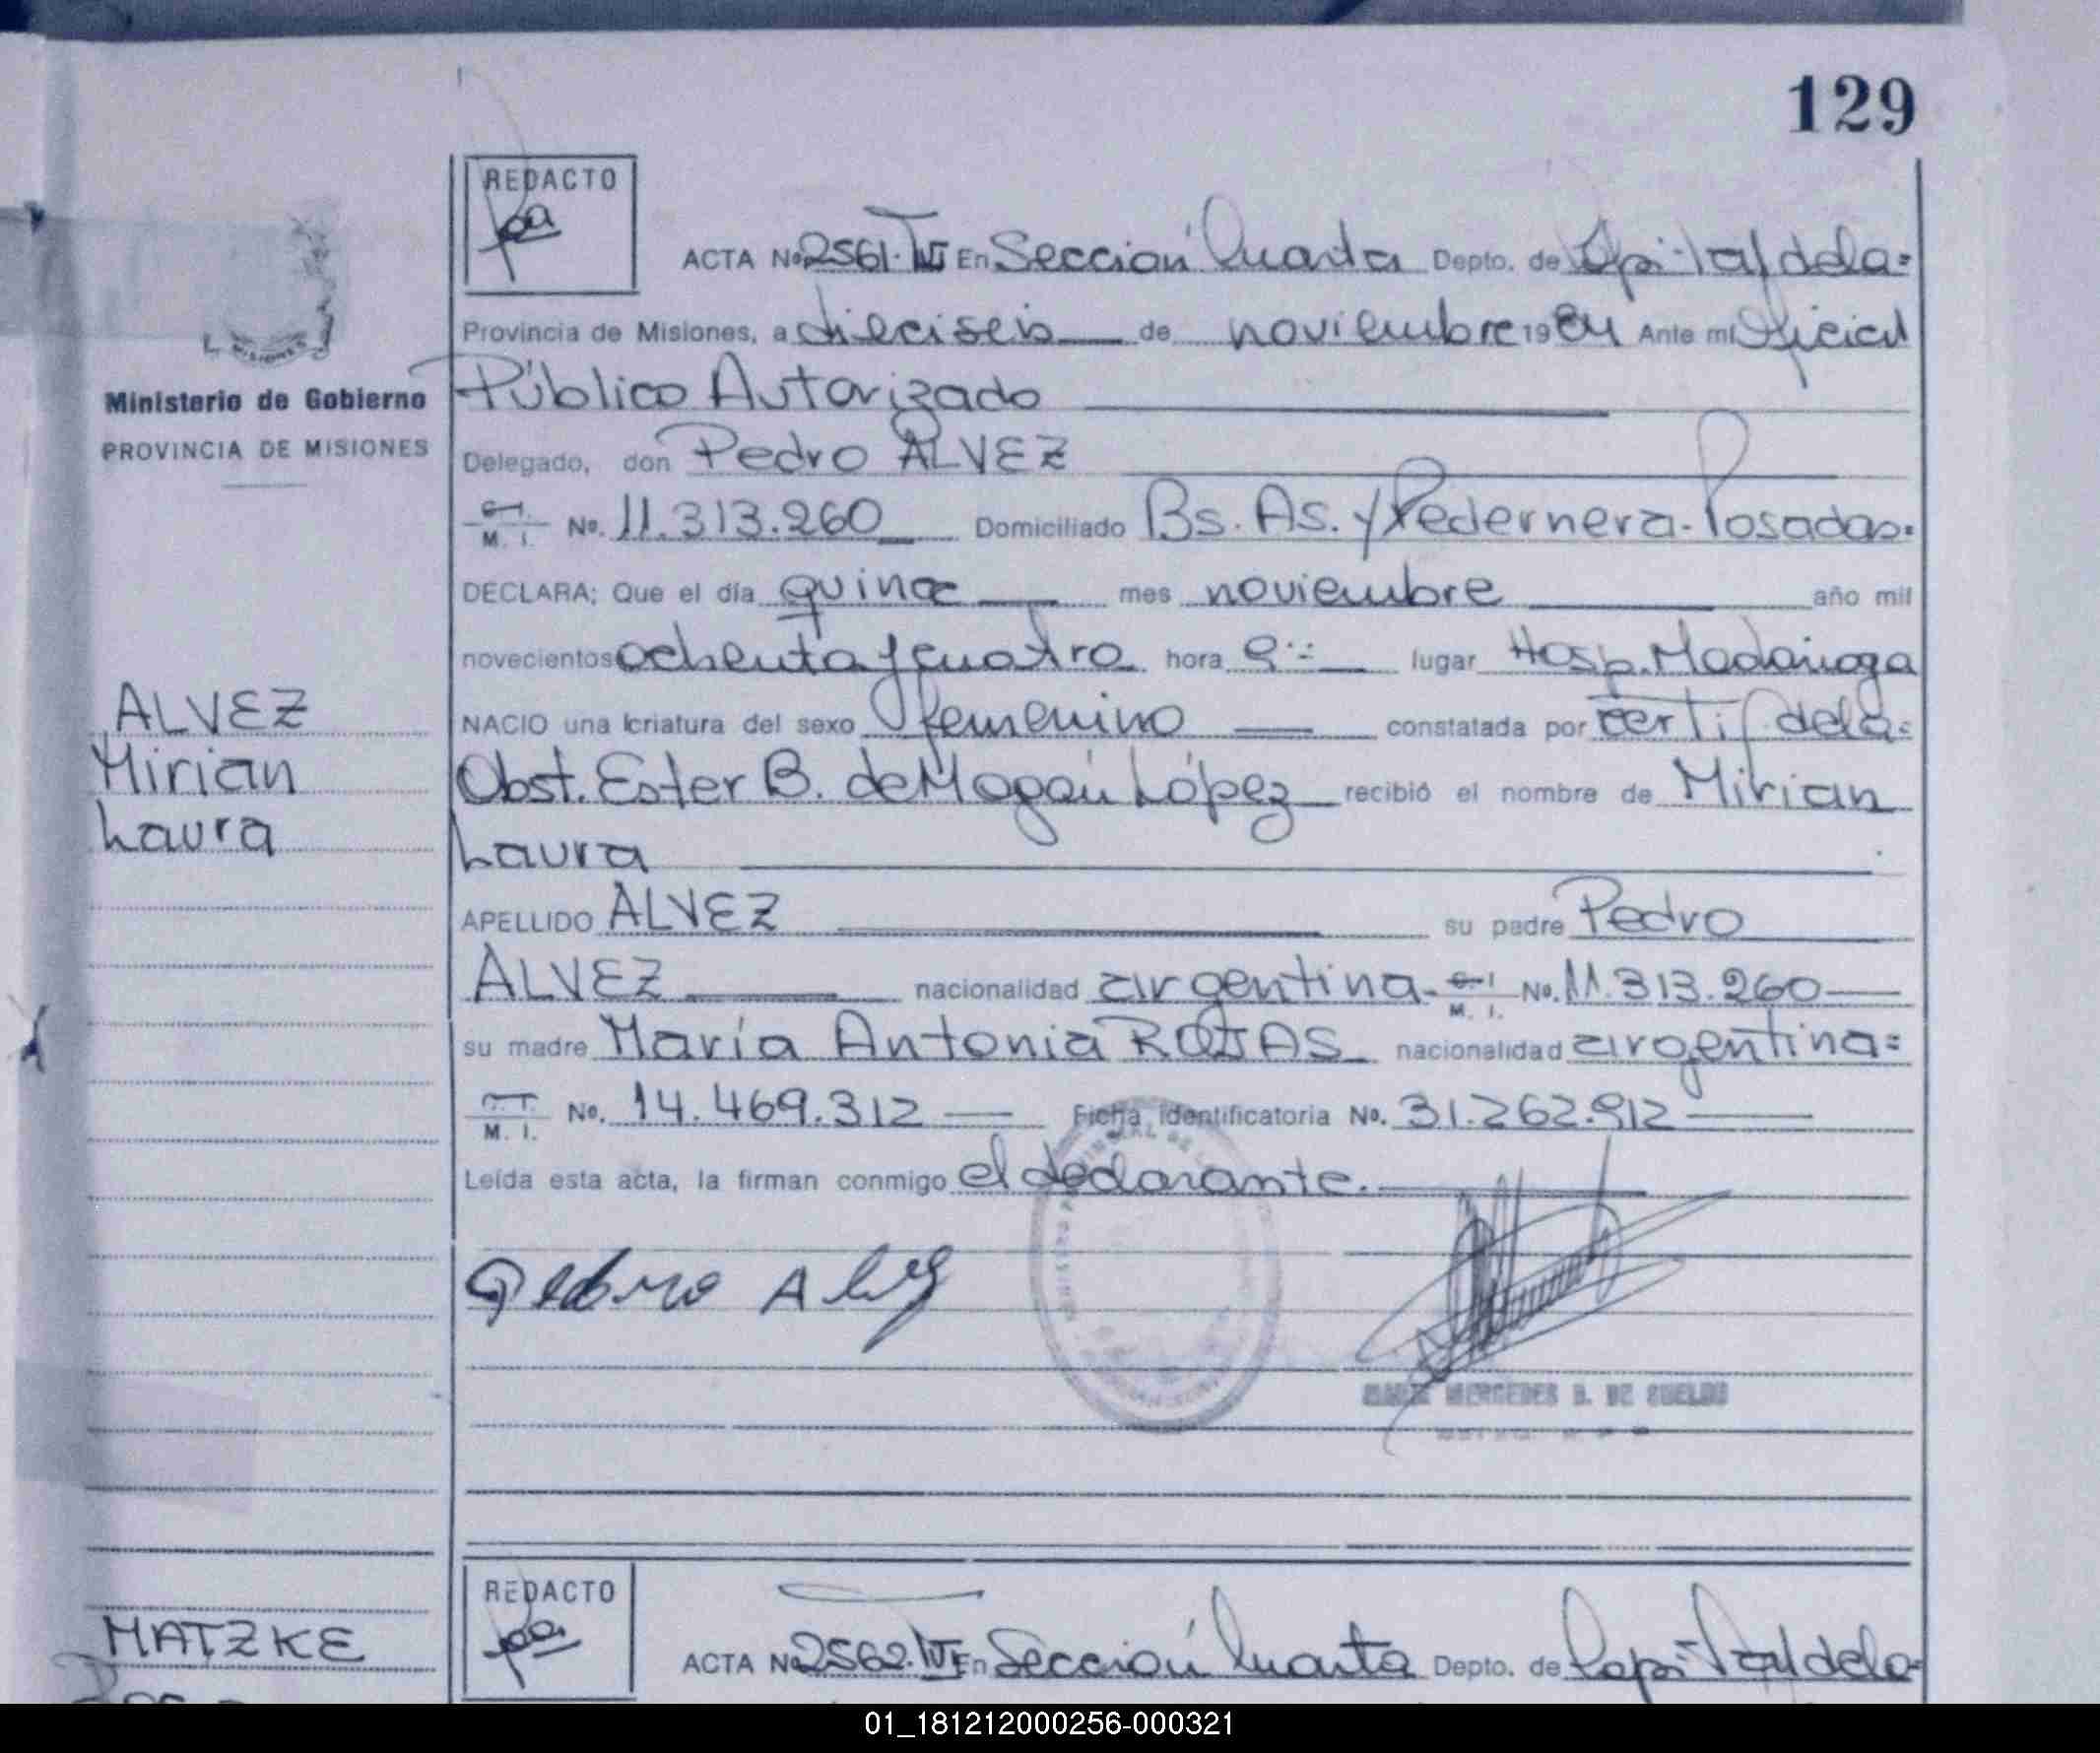 129
REDACTO
ACTA No 2561. IV En Sección Cuarta Depto. de Capital de la=
Provincia de Misiones, a dieciseis de noviembre 1984 Ante mí Oficial
Ministerio de Gobierno
Público Autorizado
PROVINCIA DE MISIONES
Delegado, don Pedro ALVEZ
M. I. No. 11.313.260 Domiciliado Bs. As. y Pedernera- Posadas.
DECLARA; Que el día quince mes noviembre año mil
novecientos ochenta y cuatro hora 9:= lugar Hosp. Madariaga
ALVEZ
Mirian
Laura
NACIO una criatura del sexo femenino constatada por certif de la=
Obst. Ester B. de López recibió el nombre de Mirian
Laura
APELLIDO ALVEZ su padre Pedro
ALVEZ nacionalidad argentina- C. I. M. I. No. 11.313.260
su madre María Antonia ROJAS nacionalidad argentina=
M. I. No. 14.469.312 Ficha identificatoria No. 31.262.912
Leída esta acta, la firman conmigo el declarante.
Pedro Alvez
MERCEDES B. DE
MATZKE
REDACTO
ACTA No 2562. IV En Sección Cuarta Depto. de Capital de la
01_181212000256-000321